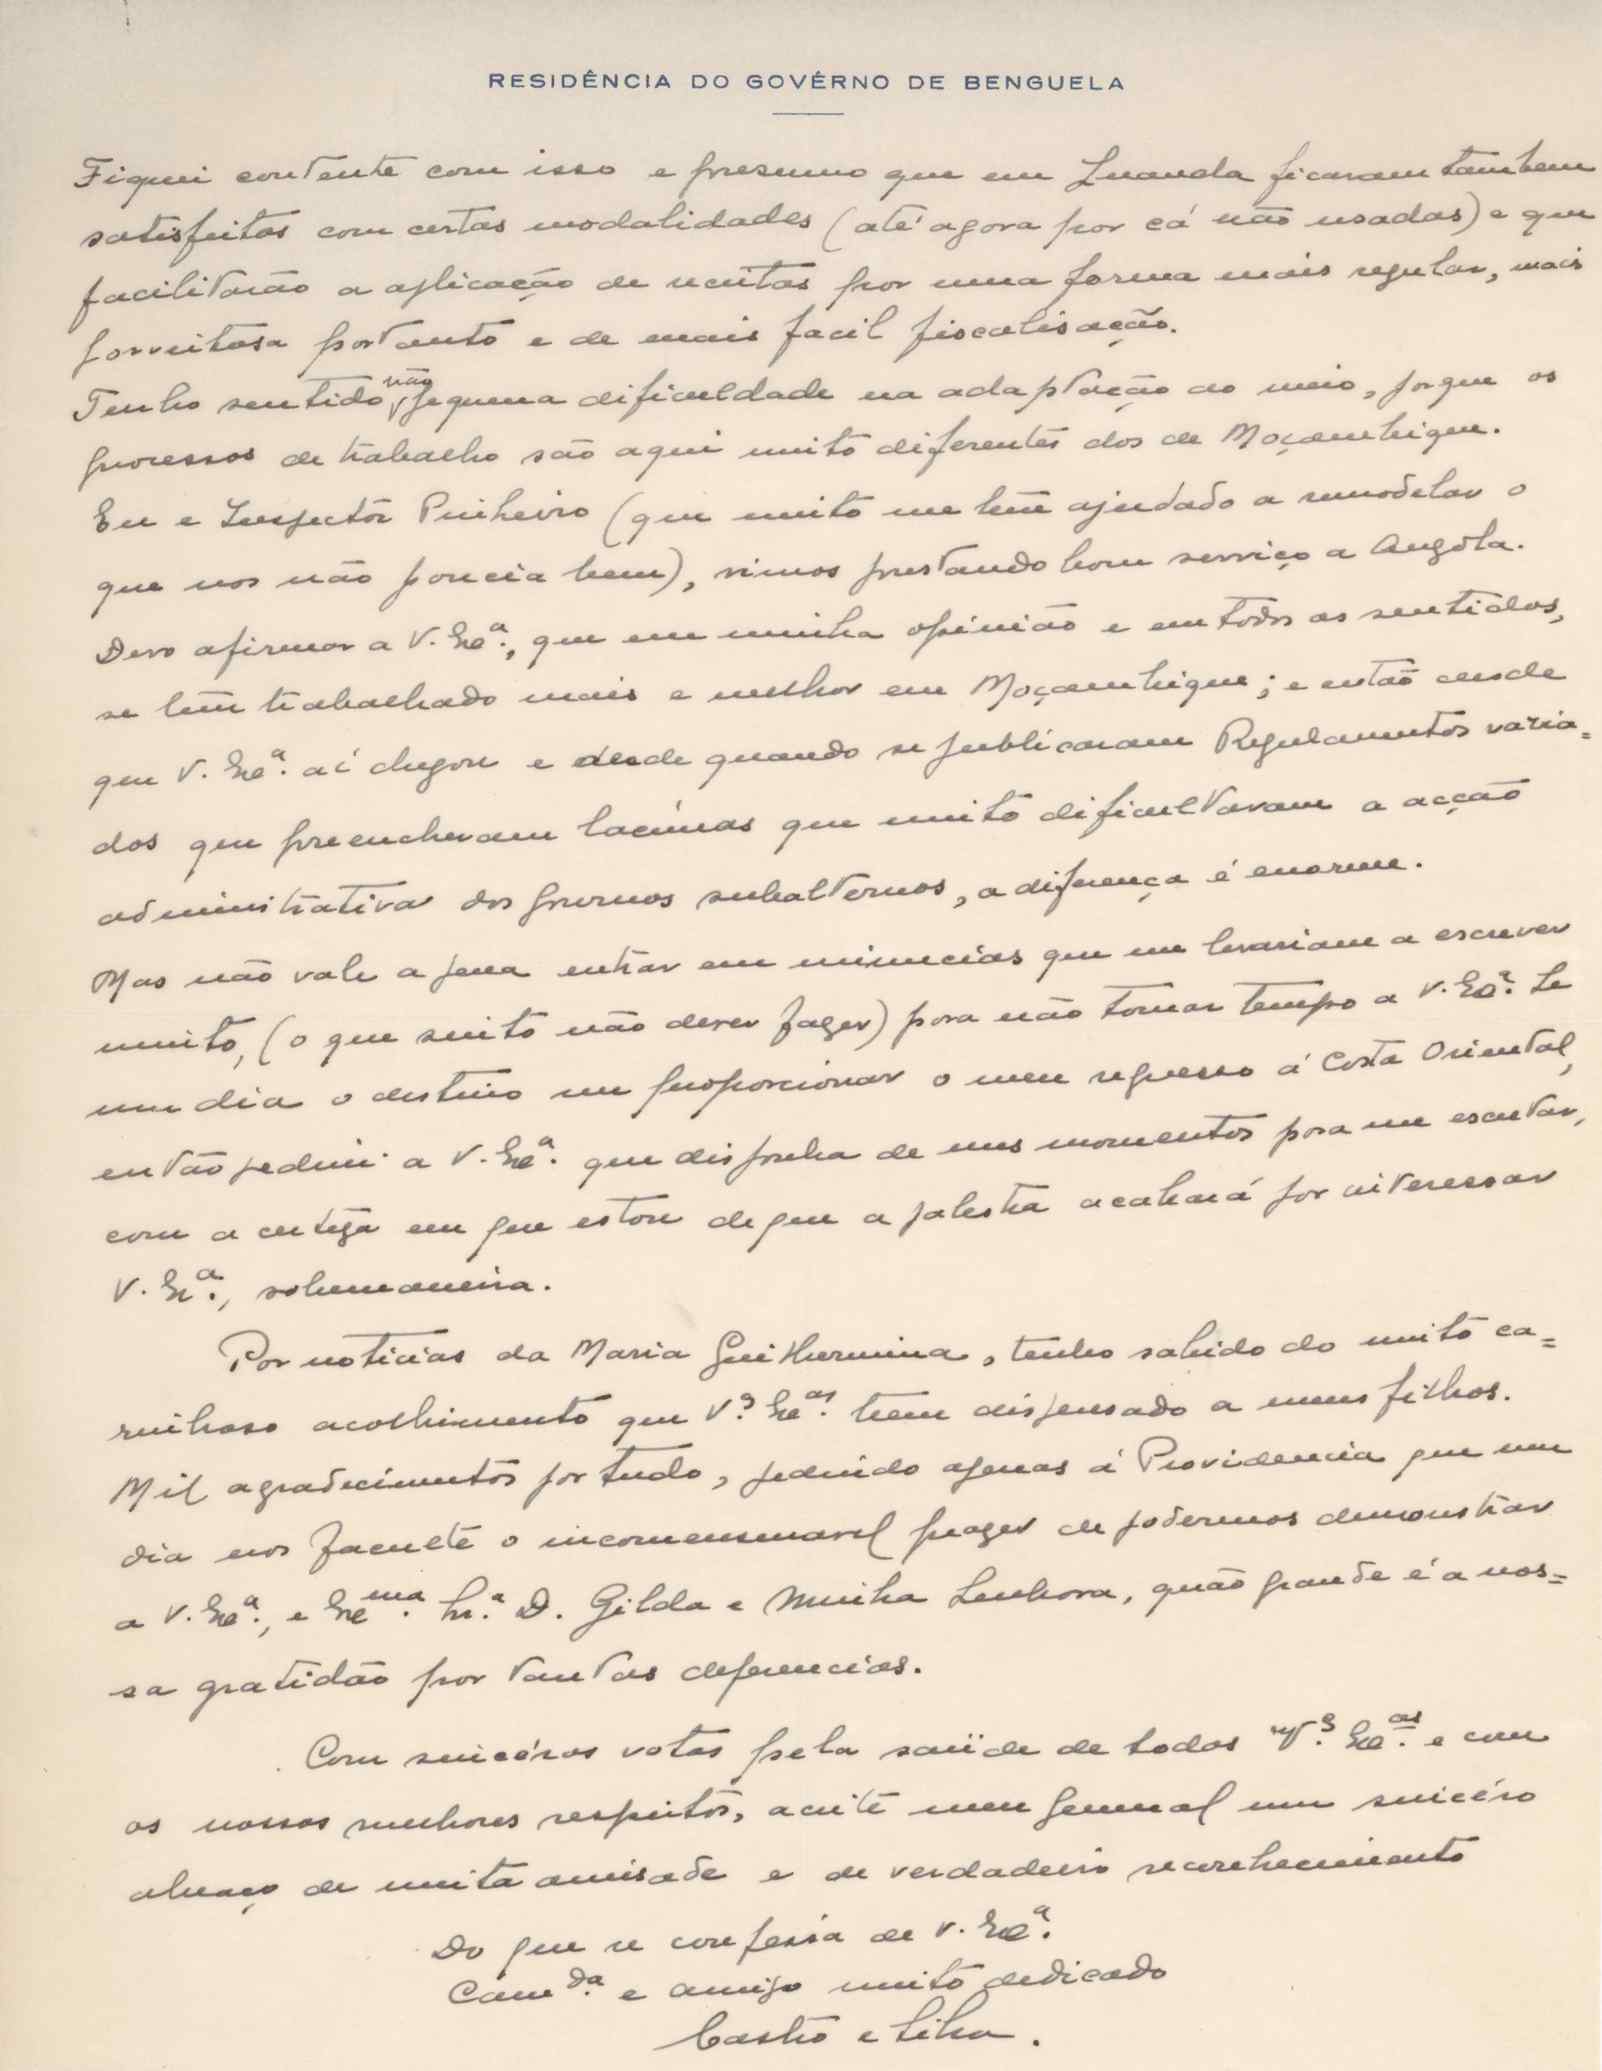 RESIDÊNCIA DO GOVÊRNO DE BENGUELA
Fiquei contente com isso e presumo que em Luanda ficaram tambem
satisfeitos com certas modalidades (até agora por cá não usadas) e que
facilitarão a aplicação de receitas por uma forma mais regular, mais
proveitosa portanto e de mais facil fiscalisação.
Tenho sentido não pequena dificuldade na adaptação ao meio, porque os
processos de trabalho são aqui muito diferentes dos de Moçambique.
Eu e Inspector Pinheiro (que muito me tem ajudado a remodelar o
que nos não parecia bem), vimos prestando bom serviço a Angola.
Devo afirmar a V. Exª., que em minha opinião e em todos os sentidos,
se tem trabalhado mais e melhor em Moçambique; e então desde
que V. Exª. aí chegou e desde quando se publicaram Regulamentos varia=
dos que preencheram lacúnas que muito dificultavam a acção
administrativa dos governos subalternos, a diferença é enorme.
Mas não vale a pena entrar em minucias que me levariam a escrever
muito, (o que sinto não dever fazer) para não tomar tempo a V. Exª. Se
um dia o destino me proporcionar o meu regresso á Costa Oriental,
então pedirei a V. Exª. que disponha de uns momentos para me escutar,
com a certeza em que estou de que a palestra acabará por interessar
V. Exª., sobremaneira.
Por noticias da Maria Guilhermina, tenho sabido do muito ca=
rinhoso acolhimento que V.ˢ Exªˢ. teem dispensado a meus filhos.
Mil agradecimentos por tudo, pedindo apenas á Providencia que um
dia nos faculte o incomensuravel prazer de podermos demonstrar
a V. Exª., e Exᵐᵃ. Sr.ª D. Gilda e Minha Senhora, quão grande é a nos=
sa gratidão por tantas deferencias.
Com sincéros votos pela saüde de todos V.ˢ Exªˢ. e com
os nossos melhores respeitos, aceite meu General um sincéro
abraço de muita amisade e de verdadeiro reconhecimento
Do que se confessa de V. Exª.
Camᵈᵃ. e amigo muito dedicado
Castro e Silva.